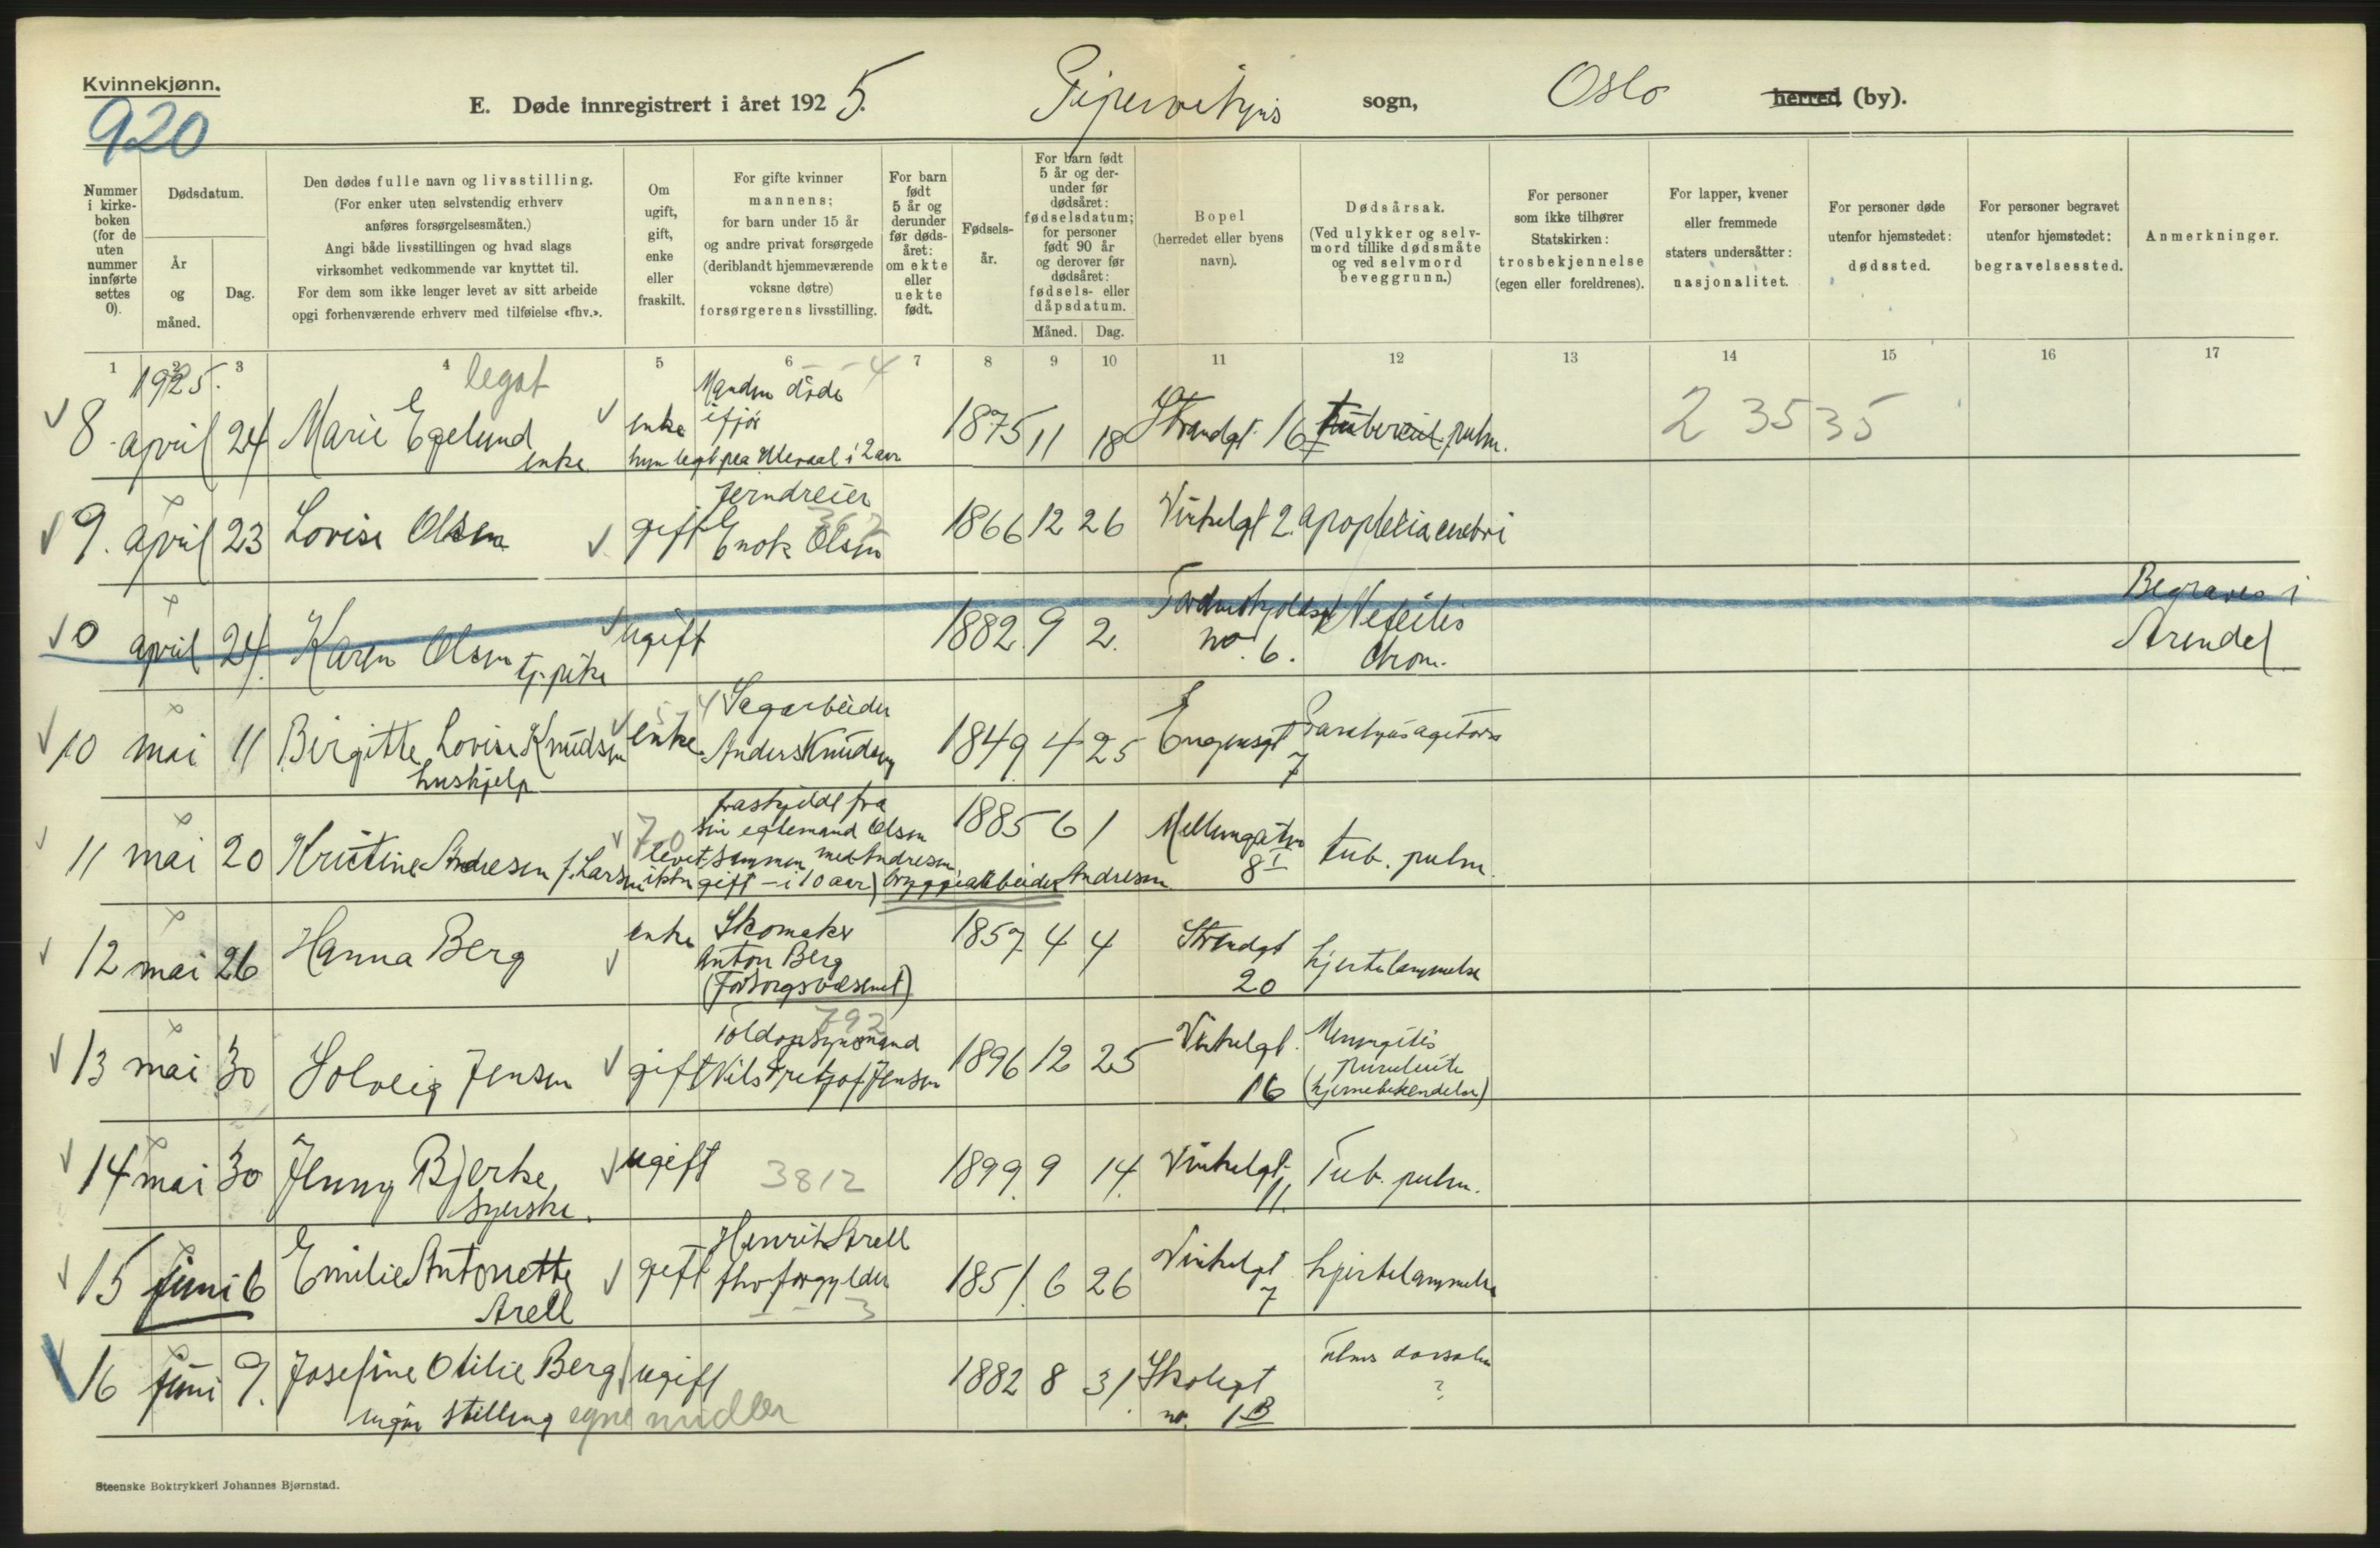 Kvinnekjønn.
920
E. Døde innregistrert i året 1925. Pipervikens sogn, Oslo herred (by).
Nummer i kirkeboken (for de uten nummer innførte settes 0).
Dødsdatum.
År og måned.
Dag.
Den dødes fulle navn og livsstilling.
(For enker uten selvstendig erhverv
anføres forsørgelsesmåten.)
Angi både livsstillingen og hvad slags
virksomhet vedkommende var knyttet til.
For dem som ikke lenger levet av sitt arbeide
opgi forhenværende erhverv med tilføielse «fhv.».
Om
ugift,
gift,
enke
eller
fraskilt.
For gifte kvinner
mannens;
for barn under 15 år
og andre privat forsørgede
(deriblandt hjemmeværende
voksne døtre)
forsørgerens livsstilling.
For barn
født
5 år og
derunder
før døds-
året:
om ekte
eller
uekte
født.
Fødsels-
år.
For barn født
5 år og der-
under før
dødsåret:
fødselsdatum;
for personer
født 90 år
og derover før
dødsåret:
fødsels- eller
dåpsdatum.
Måned. Dag.
Bopel
(herredet eller byens
navn).
Dødsårsak.
(Ved ulykker og selv-
mord tillike dødsmåte
og ved selvmord
beveggrunn.)
For personer
som ikke tilhører
Statskirken:
trosbekjennelse
(egen eller foreldrenes).
For lapper, kvener
eller fremmede
staters undersåtter:
nasjonalitet.
For personer døde
utenfor hjemstedet:
dødssted.
For personer begravet
utenfor hjemstedet:
begravelsessted.
Anmerkninger.
1 2 3 4 5 6 7 8 9 10 11 12 13 14 15 16 17
1925. legat 4
Manden døde
8. april 24 Marie Egelund enke ifjor 1875 11 18 Strandgt. 16 tubercul. pulm. 2 35 35
enke hun legt paa Ullevaal i 2 aar
Jerndreier
9. april 23 Lovise Olsen gift Enok Olsen 1866 12 26 Vinkelgt 2. apoplexia cerebri
0 april 24. Karen Olsen tj. pike ugift 1882. 9 2. Tordenskjoldsgt no. 6. Nefritis chron. Begraves i Arendal
Sagarbeider
10 mai 11 Birgitte Lovise Knudsen enke Anders Knudsen 1849. 4 25 Engensgt 7
huskjelp
fraskildt fra
sin egtemand Olsen
11 mai 20 Kristine Andresen f. Larsen 1885 6 1 Mellemgaten 8 I tub. pulm.
levet sammen med Andresen
gift – i 10 aar) bryggiarbeider Andresen
12 mai 26 Hanna Berg enke Skomaker 1857 4 4 Strandgt 20 hjertelammelse
Anton Berg
(Forsorgsvæsenet)
792
Toldopsynsmand
13 mai 30 Solveig Jensen gift Nils Fritjof Jensen 1896 12 25 Vinkelgt. 16 Meningitis
purulente
(hjernebetændelse)
14 mai 30 Jenny Bjerke ugift 3812 1899. 9 14. Vinkelgt. 11. Tub. pulm.
Syerske.
Henrik Arell
15 juni 6 Emilie Antonette Arell gift fhv forgylder 1851. 6 26 Vinkelgt 7 hjertelammelse
3
16 juni 9. Josefine Otilie Berg ugift 1882 8 31. Skolegt no. 1B Tabes dorsalis ?
ingen stilling egne midler
Steenske Boktrykkeri Johannes Bjørnstad.